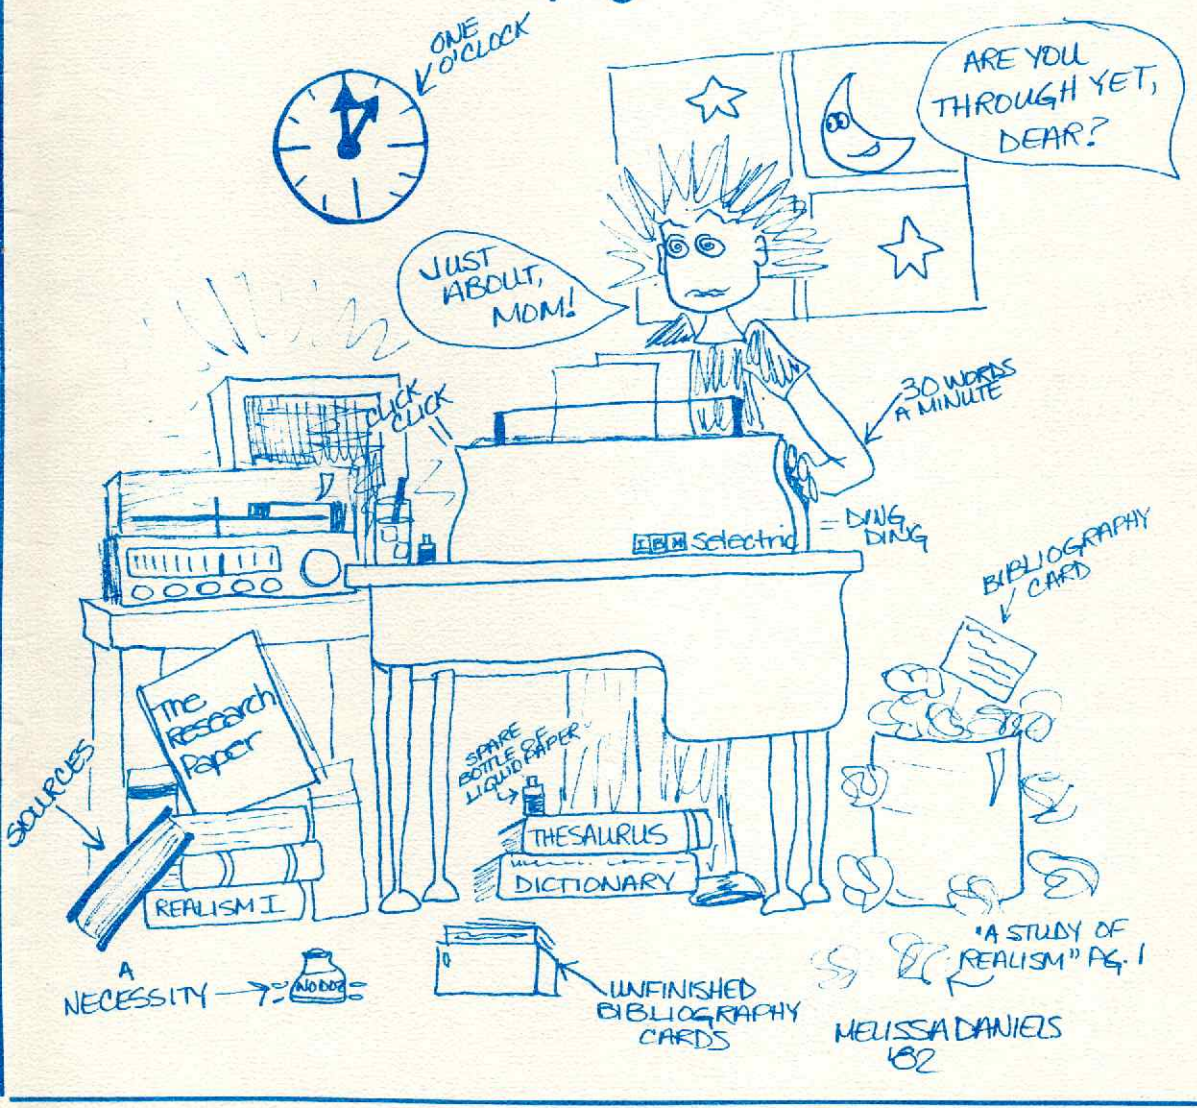 ONE
O'CLOCK
ARE YOU
THROUGH YET,
DEAR?
JUST
ABOUT,
MOM!
30 WORDS
A MINUTE
CLICK
CLICK
IBM Selectric
= DING
DING
BIBLIOGRAPHY
CARD
The
Research
Paper
SOURCES
SPARE
BOTTLE OF
LIQUID PAPER
THESAURUS
DICTIONARY
REALISM I
A
NECESSITY
NODOZ
UNFINISHED
BIBLIOGRAPHY
CARDS
"A STUDY OF
REALISM" PG. 1
MELISSA DANIELS
'82